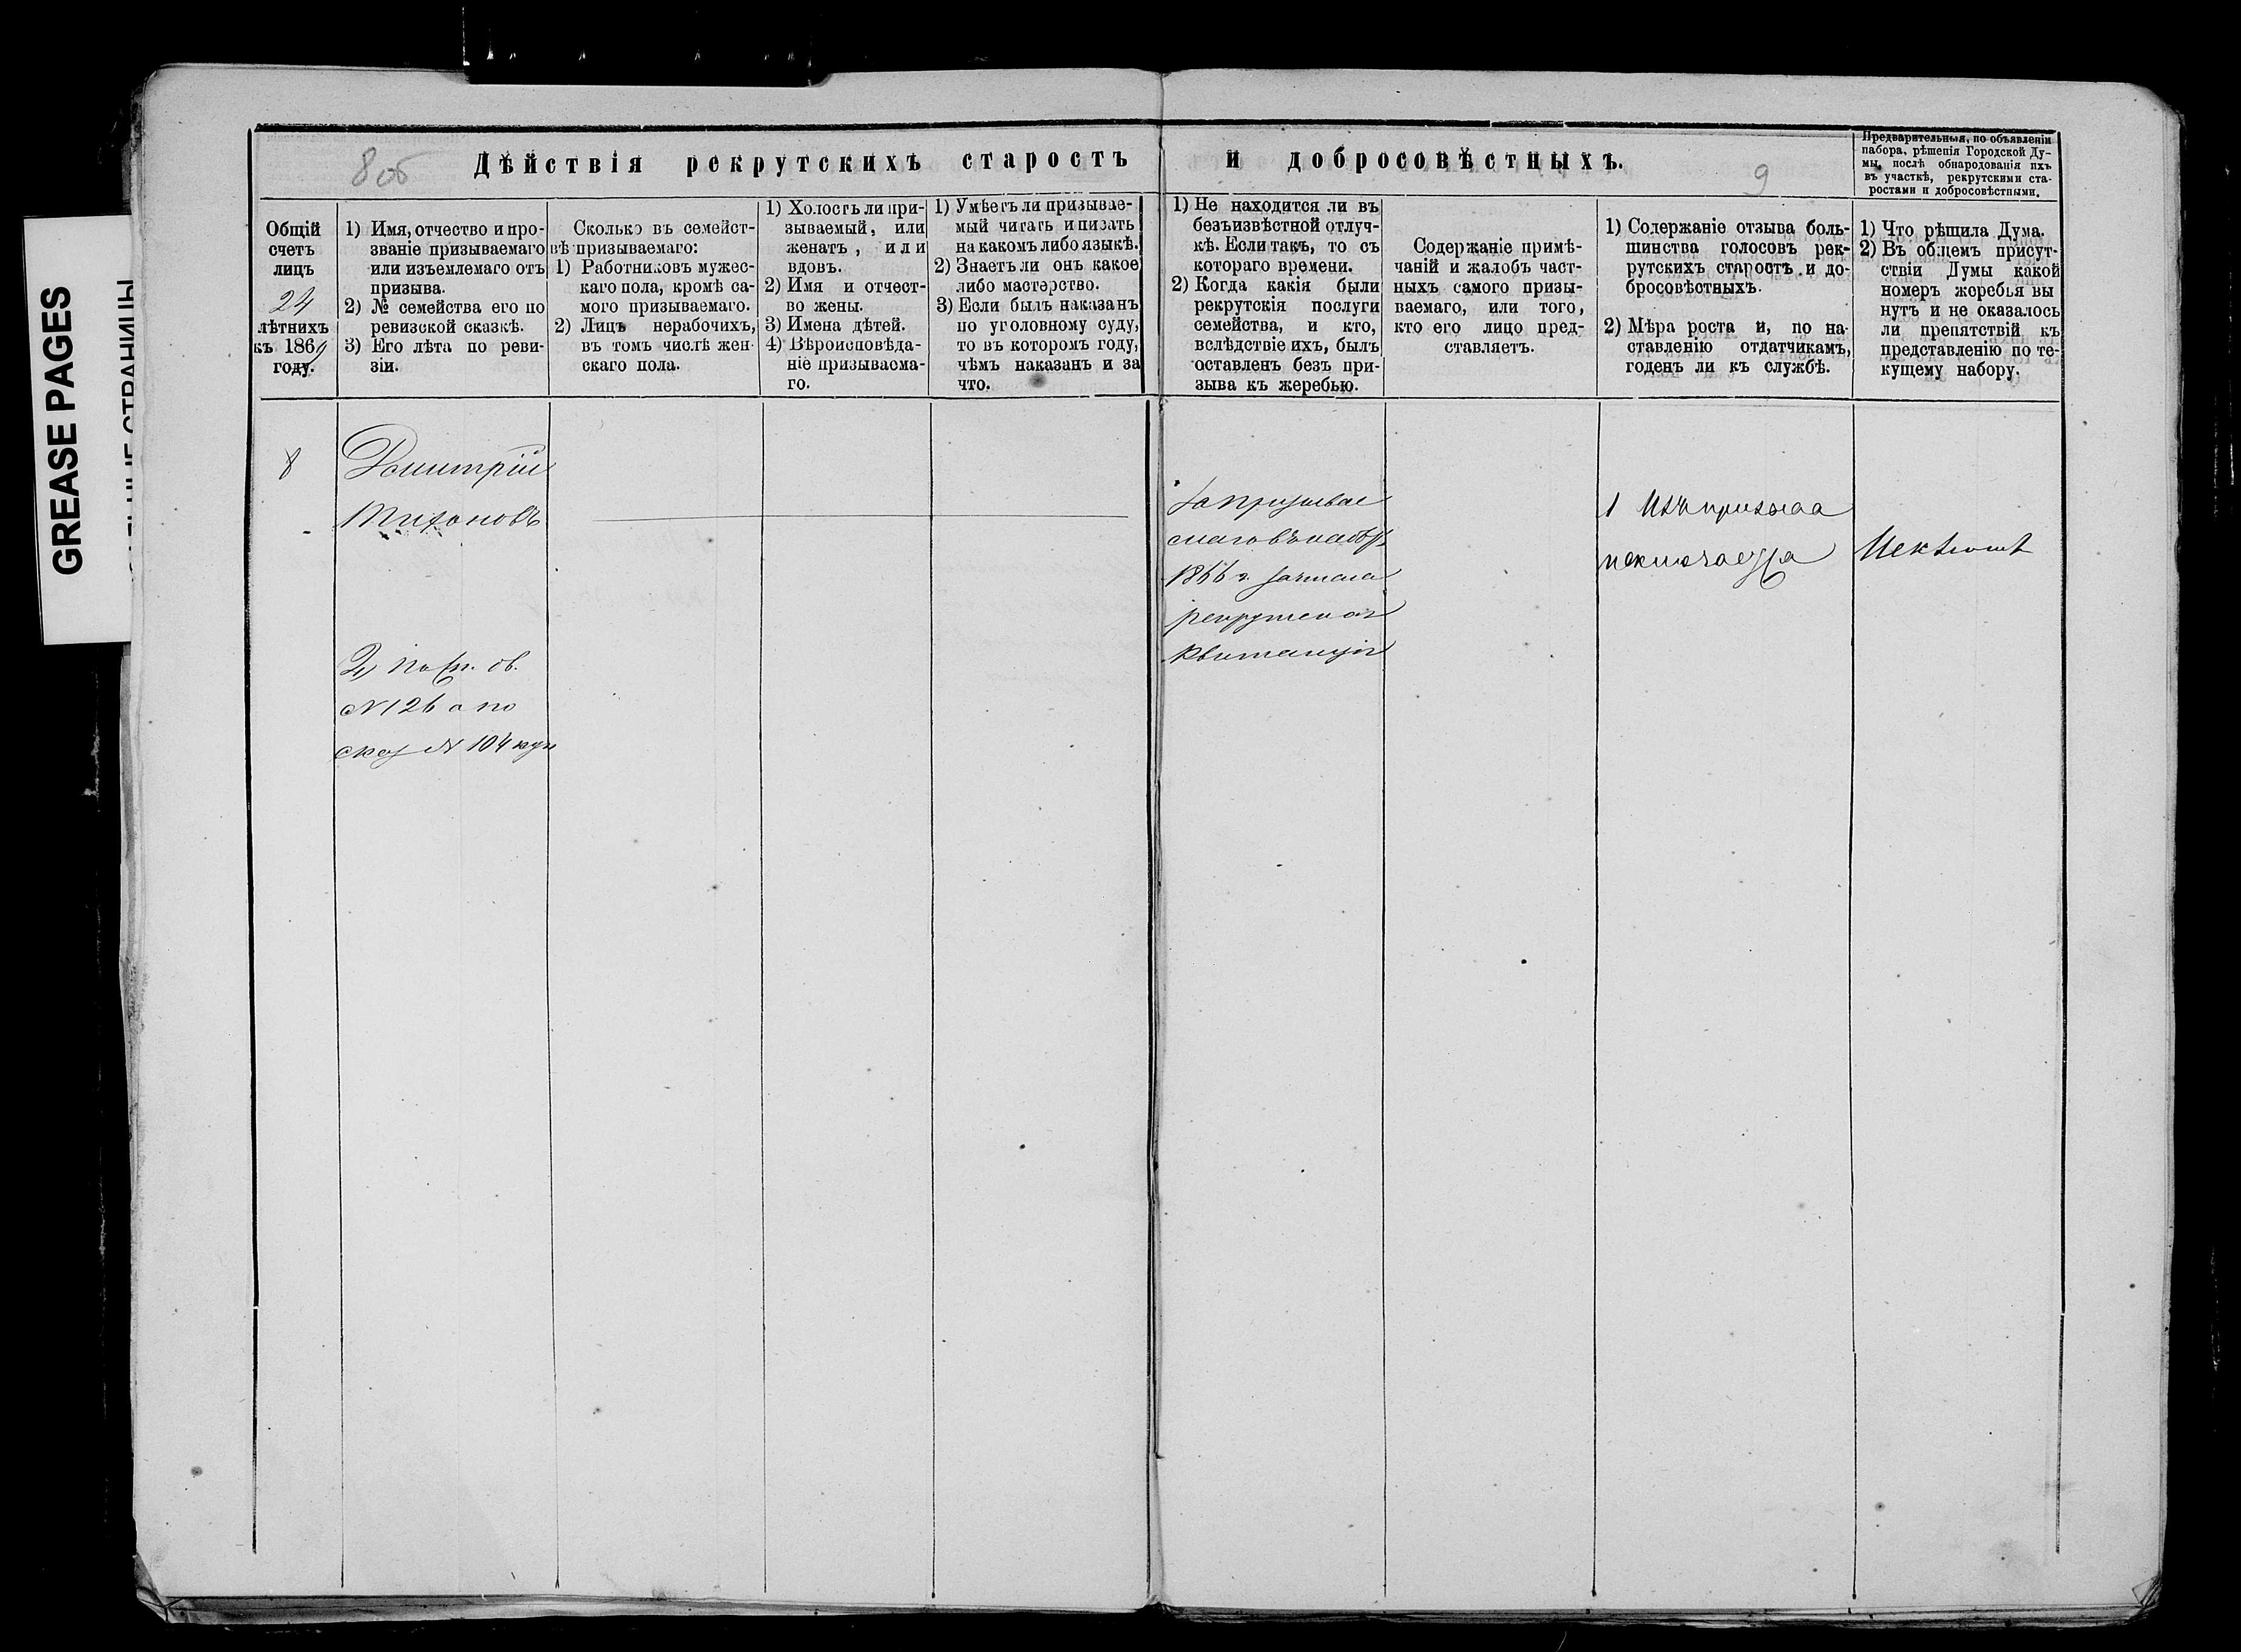 GREASE PAGES
8 об
Дѣйствія рекрутскихъ старостъ и добросовѣстныхъ.
9
Предварительныя, по объявленіи
набора, рѣшенія Городской Ду-
мы, послѣ обнародованія ихъ
въ участкѣ, рекрутскими ста-
ростами и добросовѣстными.
Общій
счетъ
лицъ
24
лѣтнихъ
къ 1869
году.
1) Имя, отчество и про-
званіе призываемаго
или изъемлемаго отъ
призыва.
2) № семейства его по
ревизской сказкѣ.
3) Его лѣта по реви-
зіи.
Сколько въ семейст-
вѣ призываемаго:
1) Работниковъ мужес-
каго пола, кромѣ са-
мого призываемаго.
2) Лицъ нерабочихъ,
въ томъ числѣ жен-
скаго пола.
1) Холостъ ли при-
зываемый, или
женатъ, или
вдовъ.
2) Имя и отчест-
во жены.
3) Имена дѣтей.
4) Вѣроисповѣда-
ніе призываема-
го.
1) Умѣетъ ли призывае-
мый читать и писать
на какомъ либо языкѣ.
2) Знаетъ ли онъ какое
либо мастерство.
3) Если былъ наказанъ
по уголовному суду,
то въ которомъ году,
чѣмъ наказанъ и за
что.
1) Не находится ли въ
безъизвѣстной отлуч-
кѣ. Если такъ, то съ
котораго времени.
2) Когда какія были
рекрутскія послуги
семейства, и кто,
вслѣдствіе ихъ, былъ
оставленъ безъ при-
зыва къ жеребью.
Содержаніе примѣ-
чаній и жалобъ част-
ныхъ самого призы-
ваемаго, или того,
кто его лицо пред-
ставляетъ.
1) Содержаніе отзыва боль-
шинства голосовъ рек-
рутскихъ старостъ и до-
бросовѣстныхъ.
2) Мѣра роста и, по на-
ставленію отдатчикамъ,
годенъ ли къ службѣ.
1) Что рѣшила Дума.
2) Въ общемъ присут-
ствіи Думы какой
номеръ жеребья вы
нутъ и не оказалось
ли препятствій къ
представленію по те-
кущему набору.
8
Дмитрій
Тихоновъ
2) По
№ 126 а по
сказ № 104
За призывае
маго въ наборъ
1866 г. зачтена
рекрутская
квитанція
1 Изъ призыва
исключается
Исключ